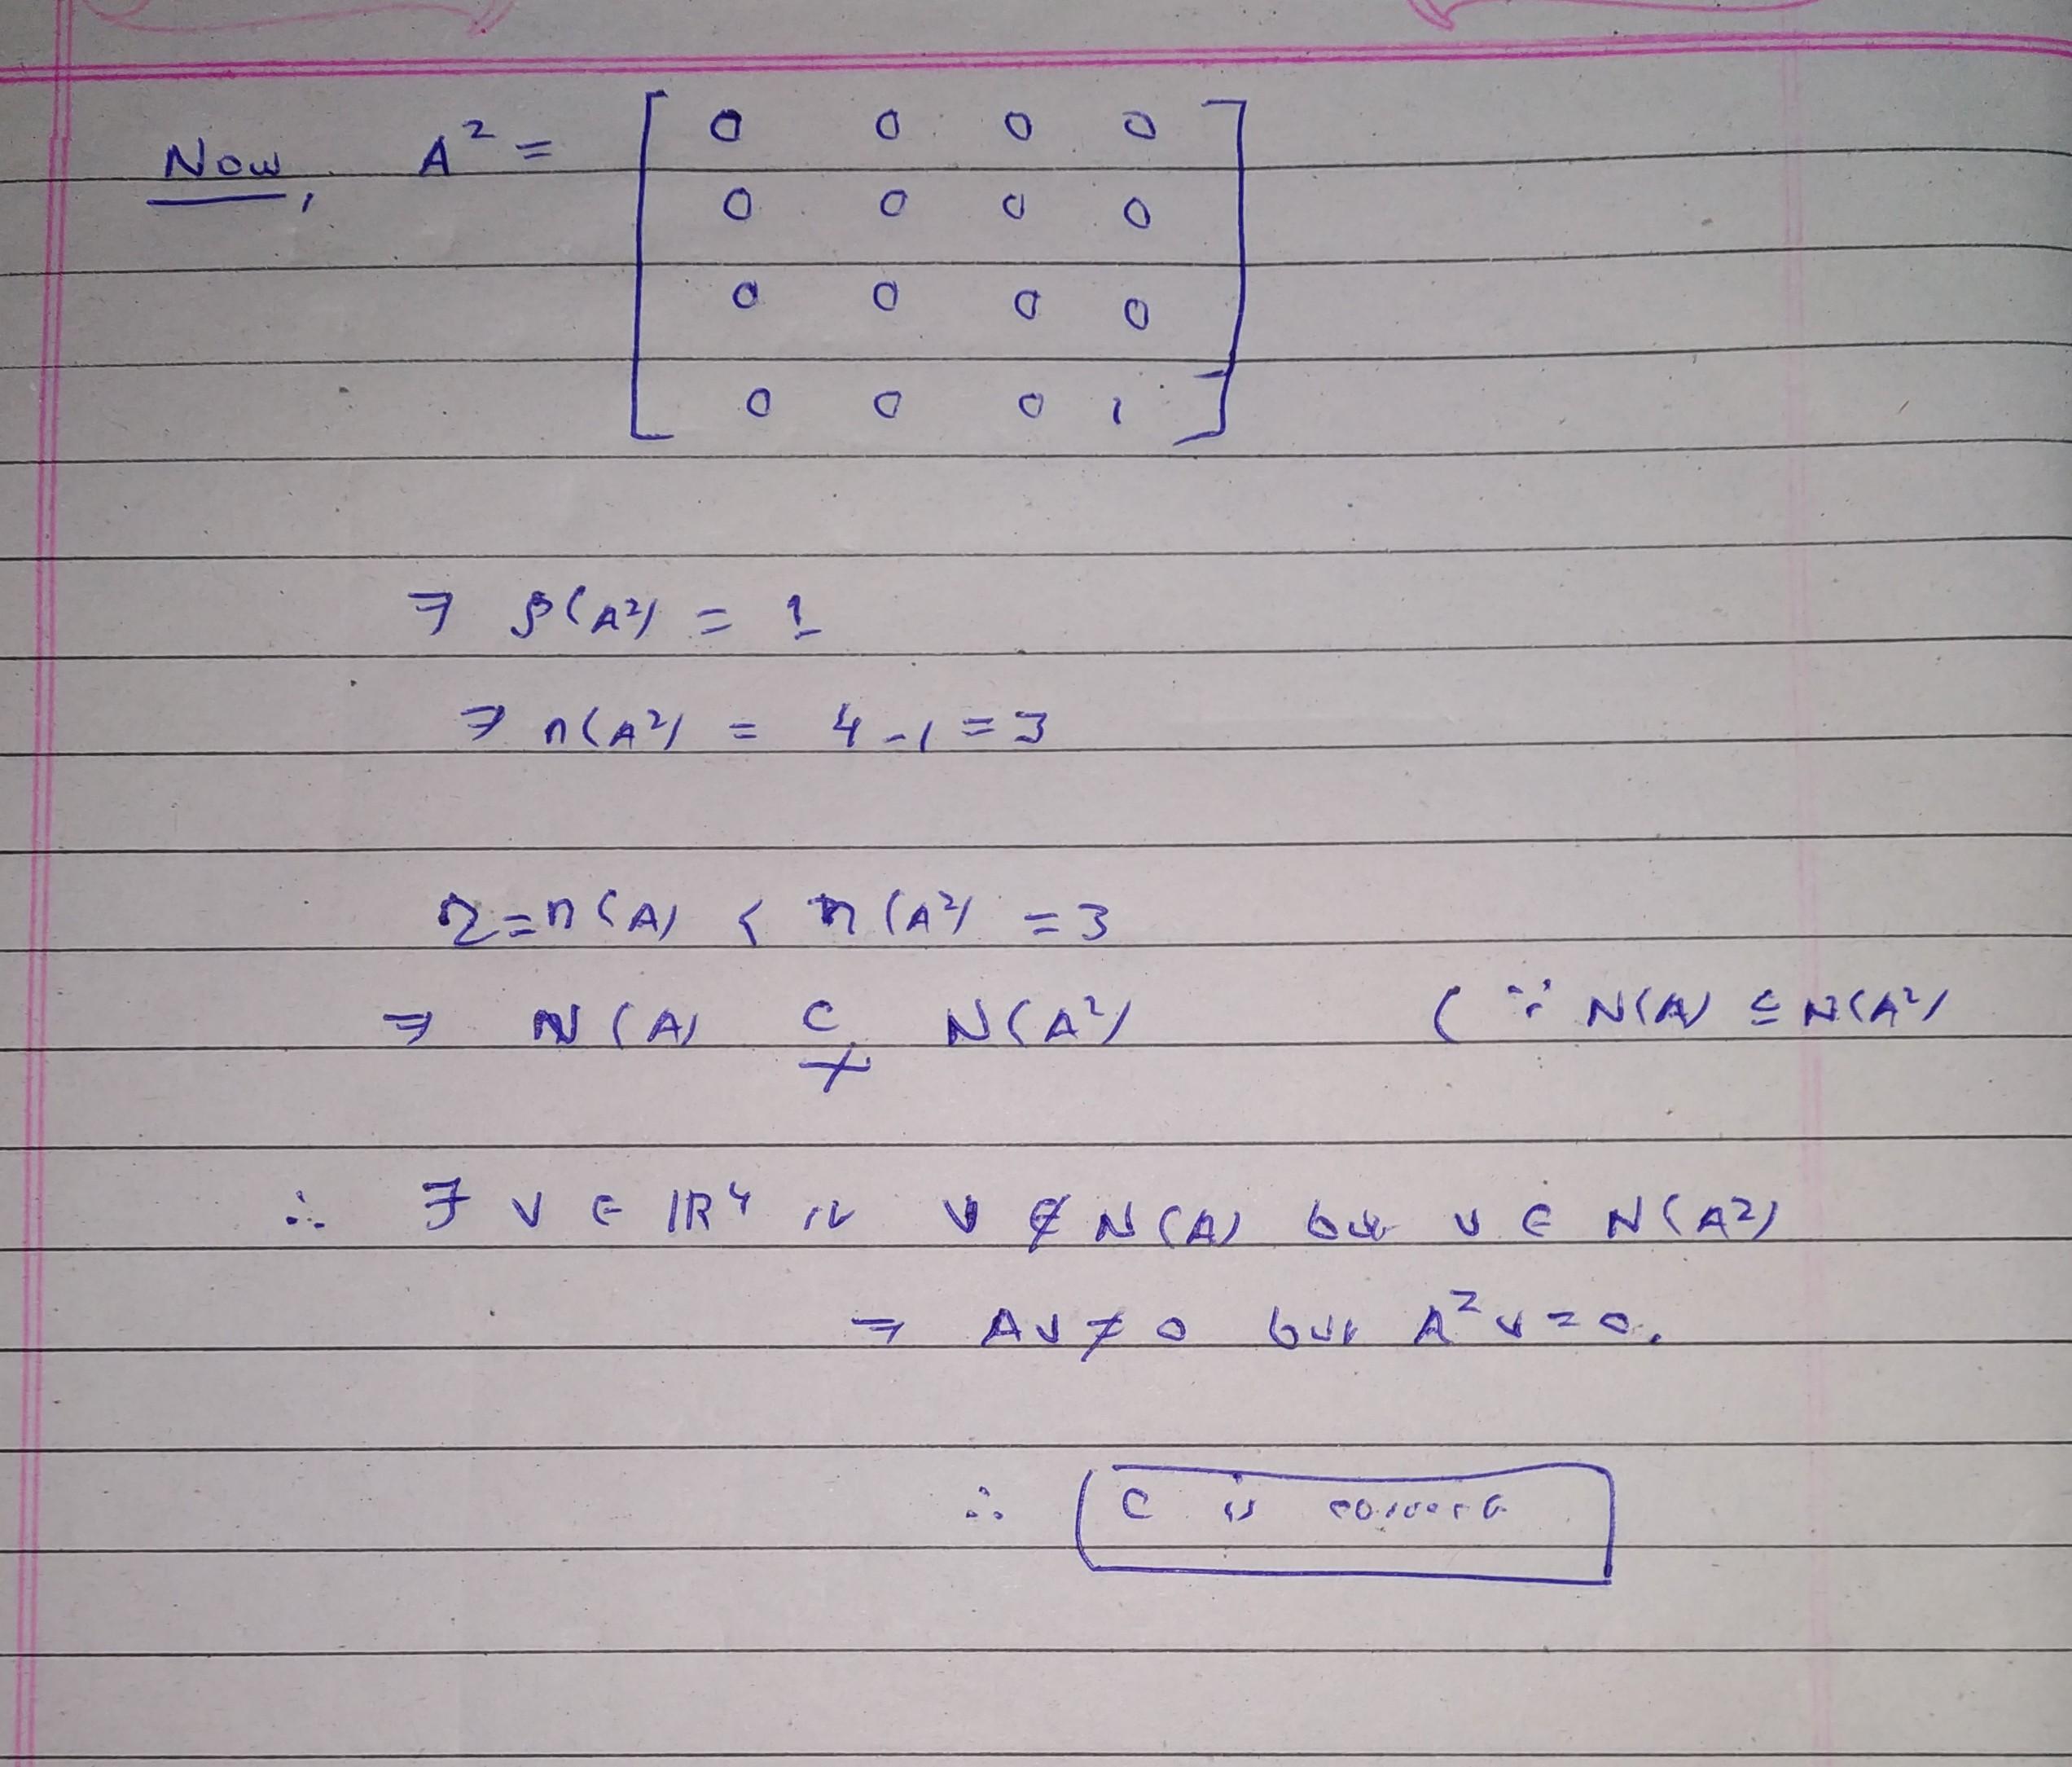 Now, A² = [ 0 0 0 0
0 0 0 0
0 0 0 0
0 0 0 1 ]
⇒ ρ(A²) = 1
⇒ n(A²) = 4-1 = 3
2 = n(A) < n(A²) = 3
⇒ N(A) ⊊ N(A²) (∵ N(A) ⊆ N(A²)
∴ ∃ v ∈ ℝ⁴ v ∉ N(A) but v ∈ N(A²)
⇒ Av ≠ 0 but A²v = 0.
∴ C is correct